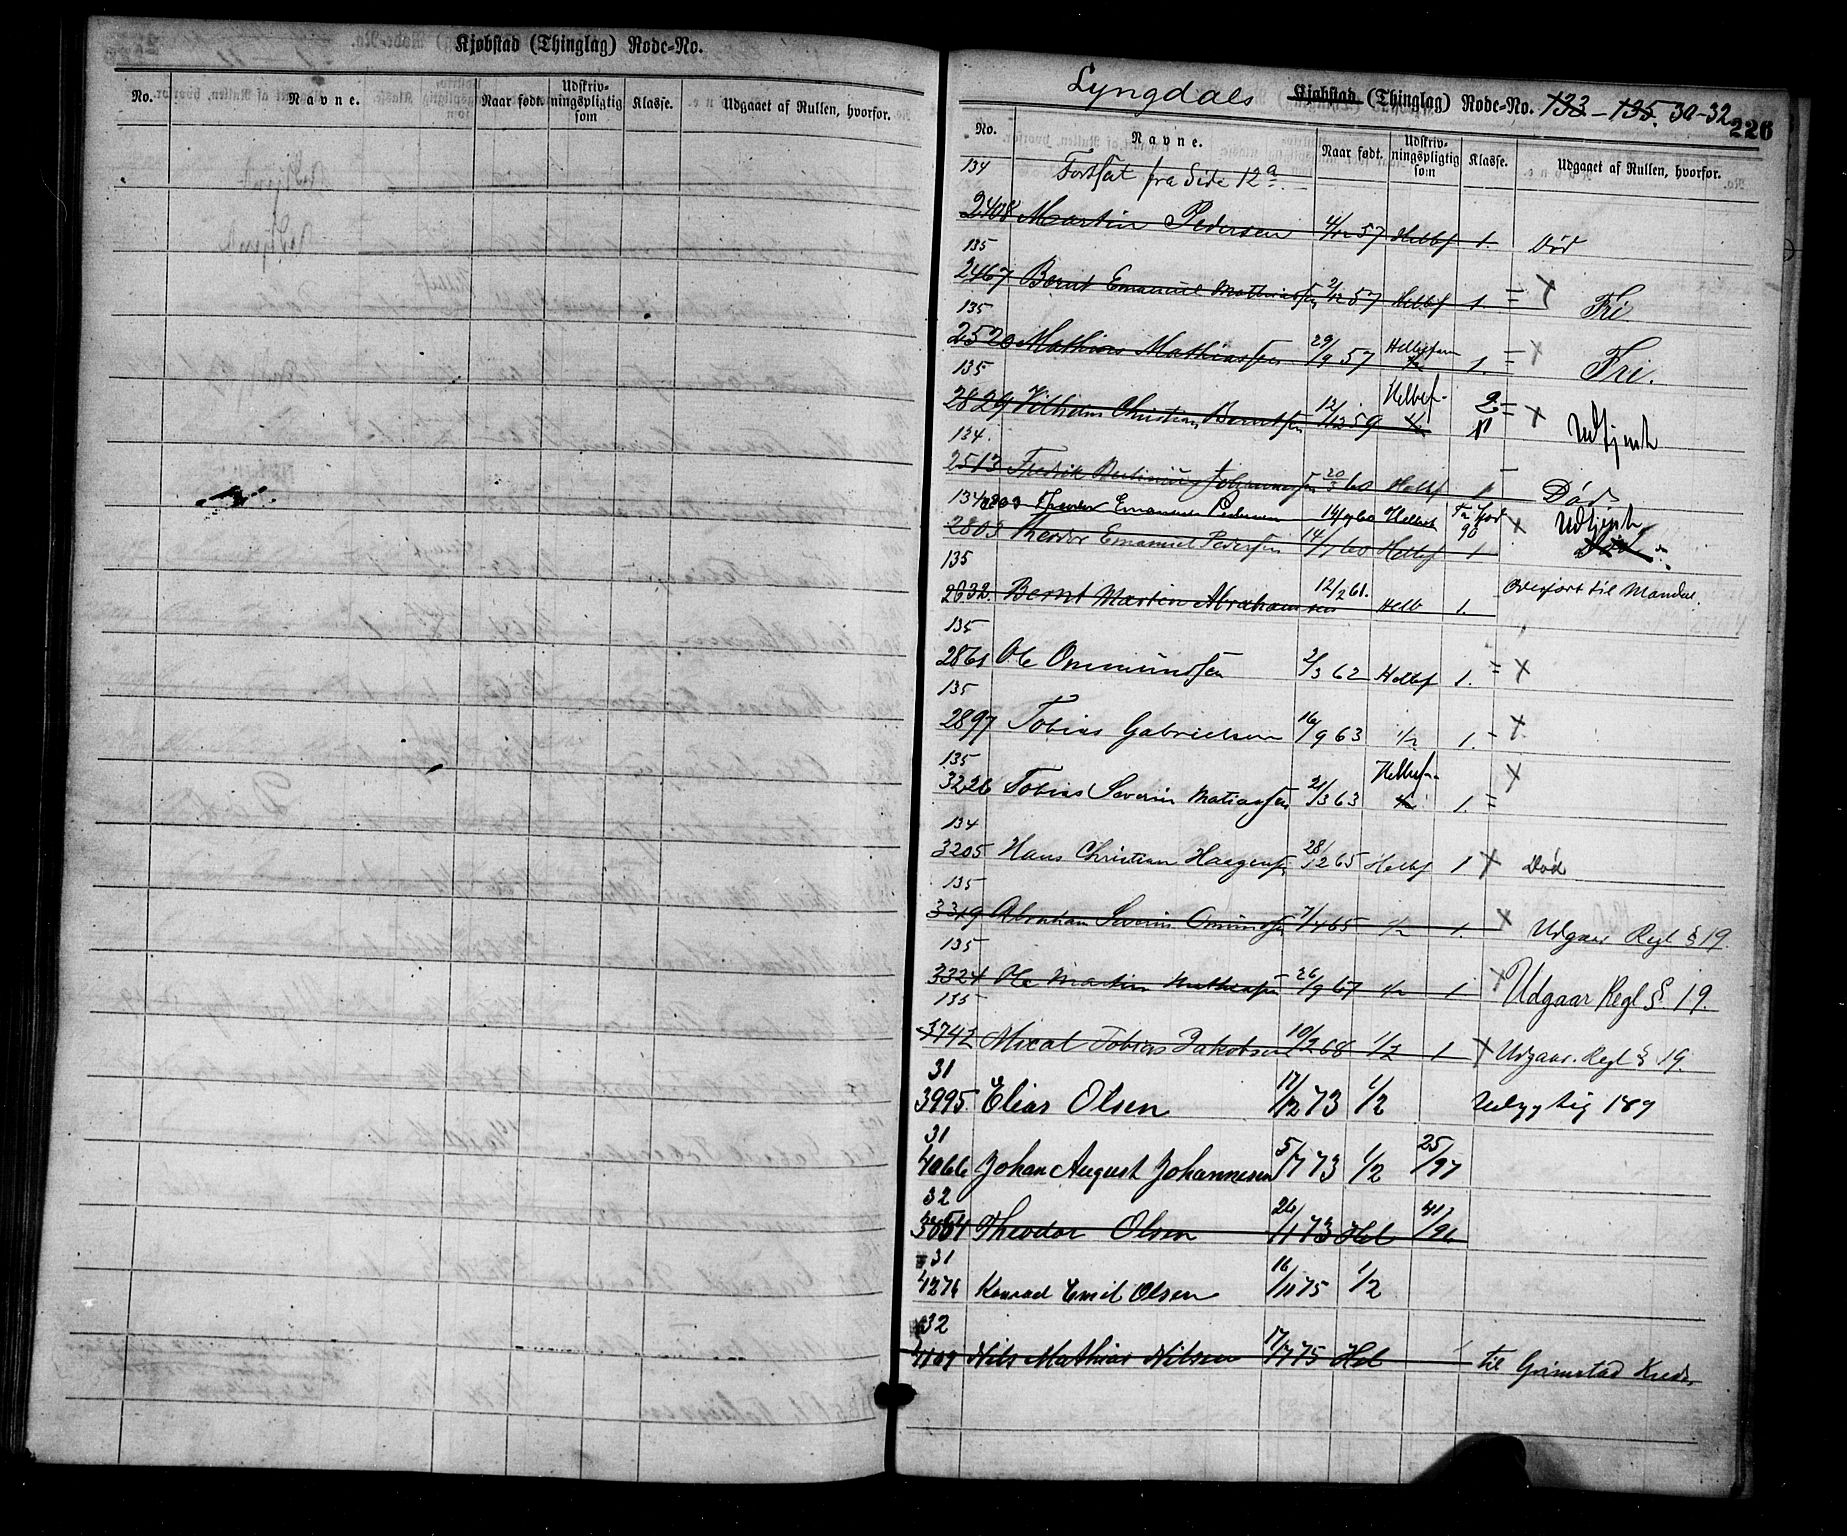 Kjøbstad (Thinglag) Rode-No.
No. Navne. Naar født. Udskriv-ningspligtig som Klasse. Udgaaet af Rullen, hvorfor.
Lyngdals Kjøbstad (Thinglag) Rode-No. 133-135. 30-32 226
No. Navne. Naar født. Udskriv-ningspligtig som Klasse. Udgaaet af Rullen, hvorfor.
134 Fortsat fra Side 12a
2408 Martin Pedersen 4/12 57 Helbf 1. Død
135
2467 Bernt Emanuel Mathiassen 2/12 57 Helbf 1. = x Fri
135
2520 Mathias Mathiassen 29/9 57 Helbefarn 1. = x Fri.
135
2829 Vilhelm Christian Berntsen 12/12 59 Helbef. 2 = x Udtjent
134.
2513 Fredrik Johannessen 20/3 60 Helbf 1 - Død
134 2803 Theodor Emanuel Pedersen 14/1 60 Helbef 90 x Udtjent
2803 Theodor Emanuel Pedersen 14/1 60 Helbf 1 Død
135
2032. Bernt Martin Abrahamsen 12/2 61. Helb 1. Overført til Mandal.
135
2861 Ole Ommundsen 2/3 62 Helbf 1. = x
135
2897 Tobias Gabrielsen 16/9 63 1/2 1. - x
135
3226 Tobias Severin Matiassen 21/3 63 Helbef. 1. = x
134
3205 Hans Christian Haagensen 28/12 65 Helbf 1 x Død
135
3319 Abraham Severin Omundsen 7/4 65 1/2 1. x Udgaar Regl § 19.
135
3324 Ole Martin Mathiassen 26/9 67 1/2 1 x Udgaar Regl § 19.
135
3742 Mical Tobias Jakobsen 10/2 68 1/2 1 x Udgaar. Regl § 19.
31
3995 Elias Olsen 17/12 73 1/2 Udygtig 189
31
4066 Johan August Johannesen 5/7 73 1/2 25/97
32
3854 Theodor Olsen 24/1 73 Hel 41/96
31
4276 Konrad Emil Olsen 16/11 75 1/2
32
4109 Nils Mathias Nilsen 17/7 75 Hel til Grimstad Kreds.